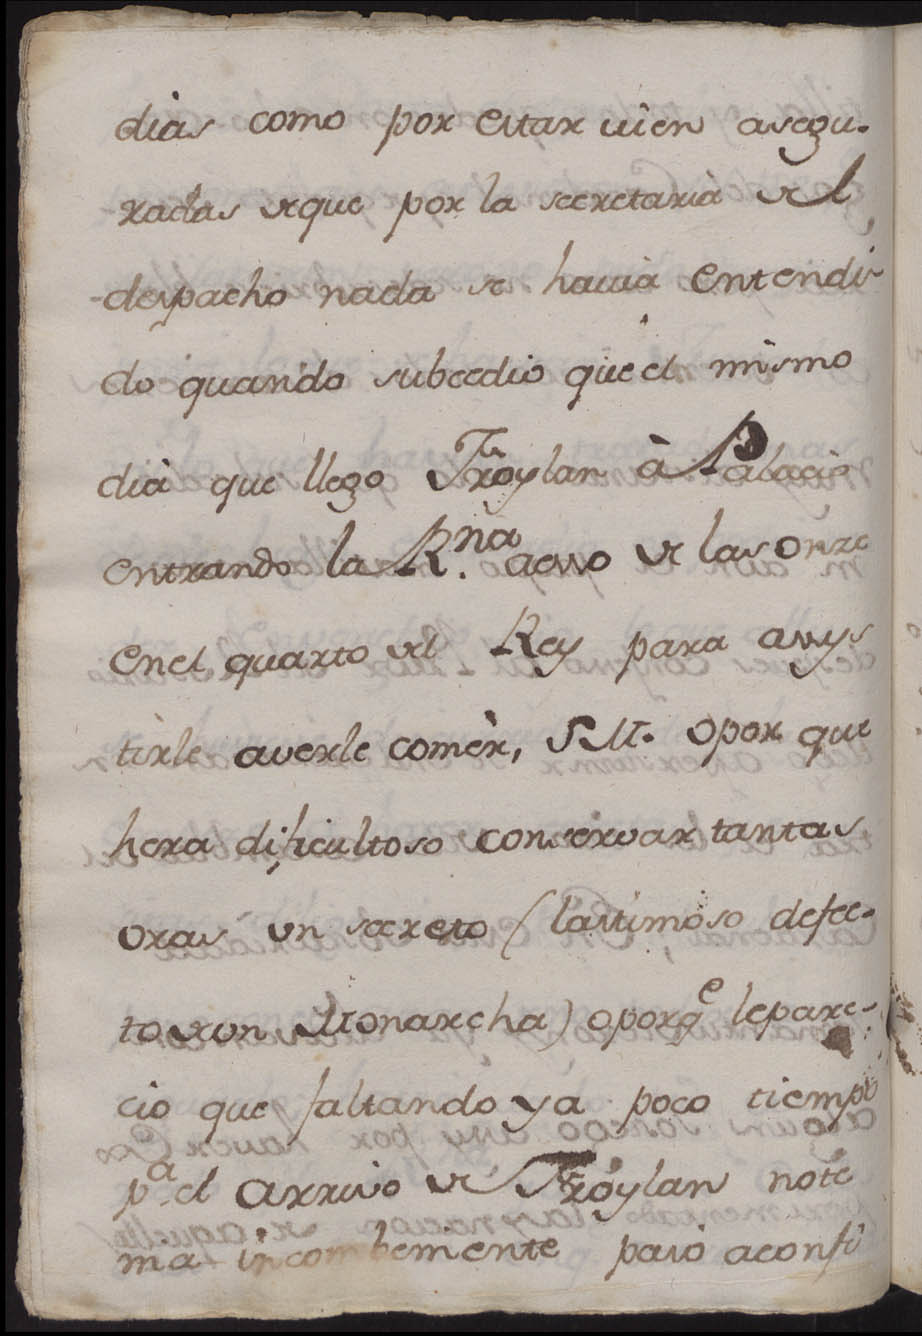 dias como por estar vien asegu-
radas de que por la secretaria del
despacho nada se havia entendi-
do quando subcedio que el mismo
dia que llego Froylan à Palacio
entrando la R.na a eso de las onze
en el quarto del Rey para asys
tirle a verle comèr, S.M. o por que
hera dificultoso conservar tantas
oras un secreto (lastimoso defec-
to de un Monarcha) o porq.e le pare-
cio que faltando ya poco tiempo
p.a el arrivo de Froylan no te
ma incombeniente paso a confi